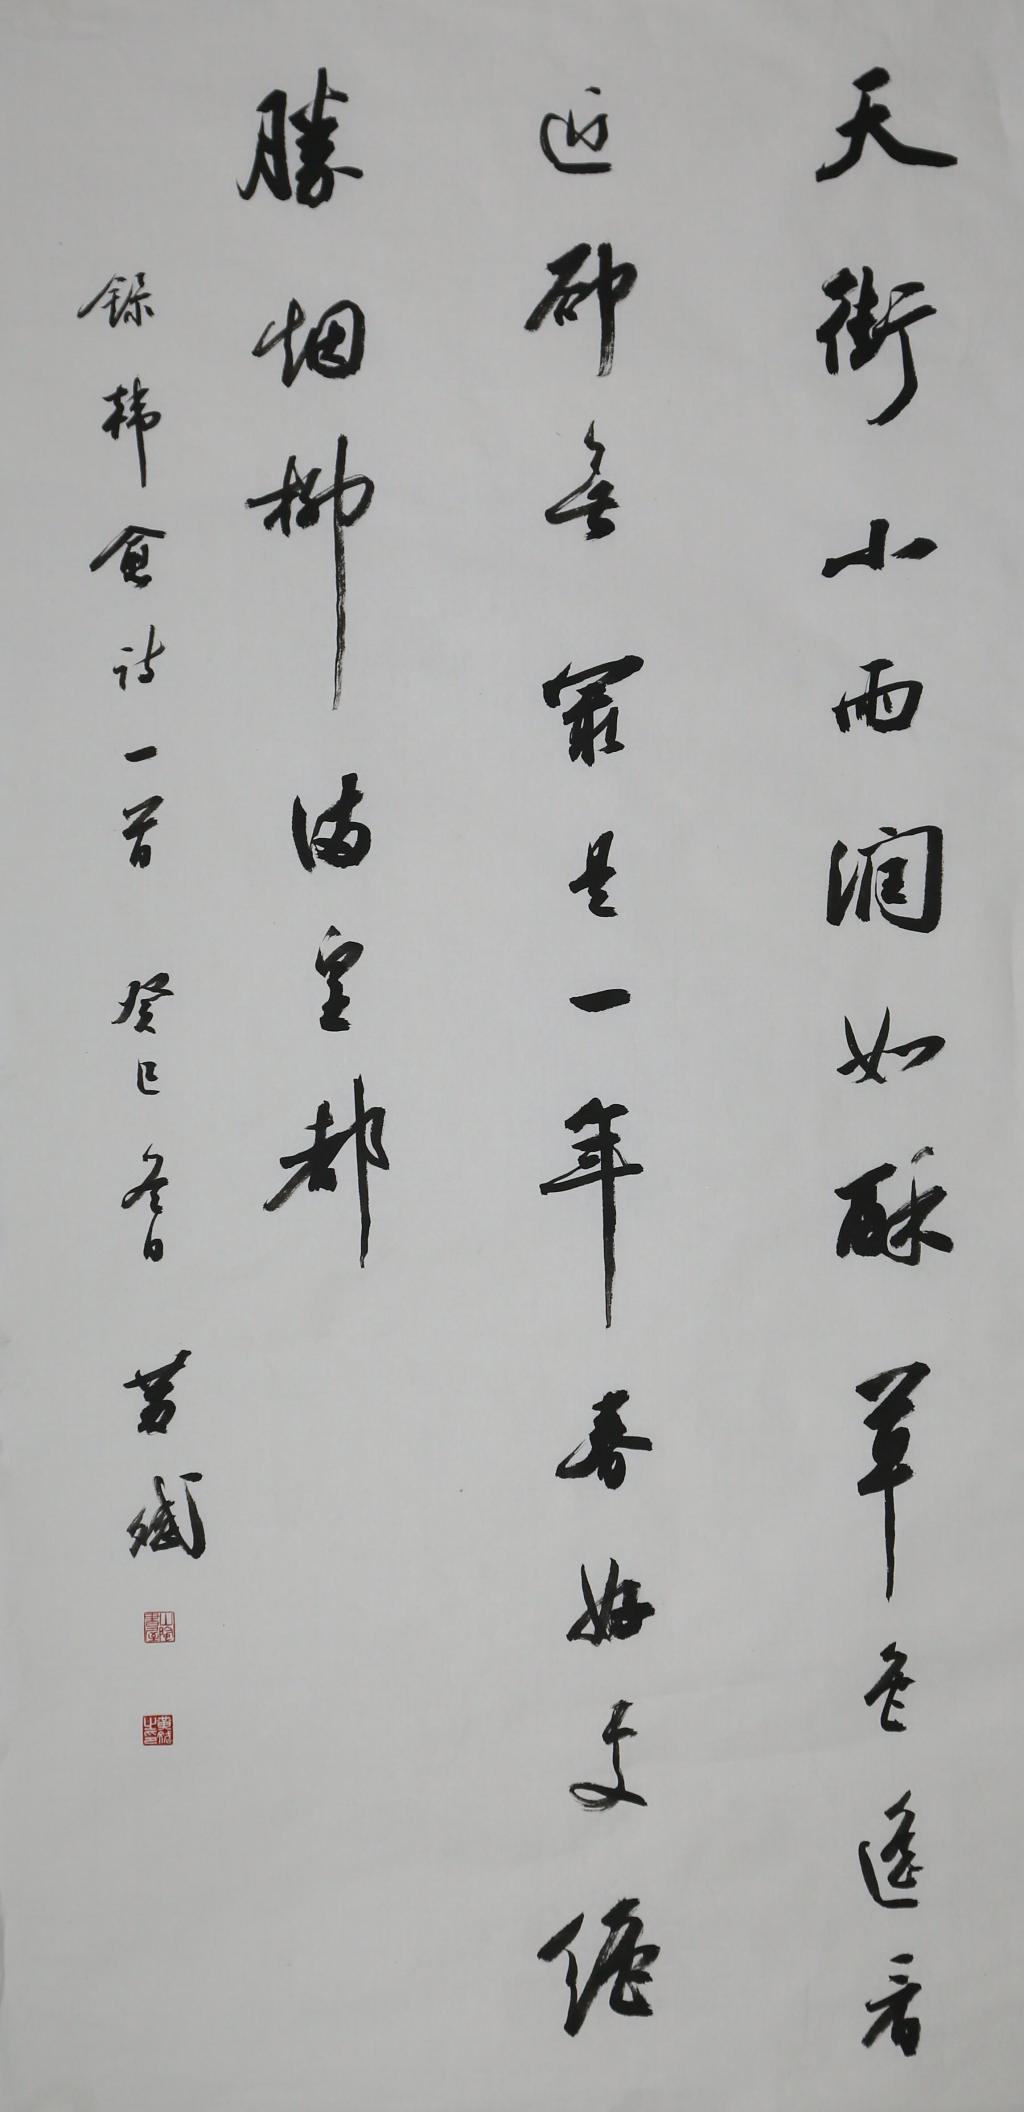 天街小雨润如酥草色遥看
近却無最是一年春好处絕
勝烟柳满皇都
録韩愈诗一首 癸巳冬日